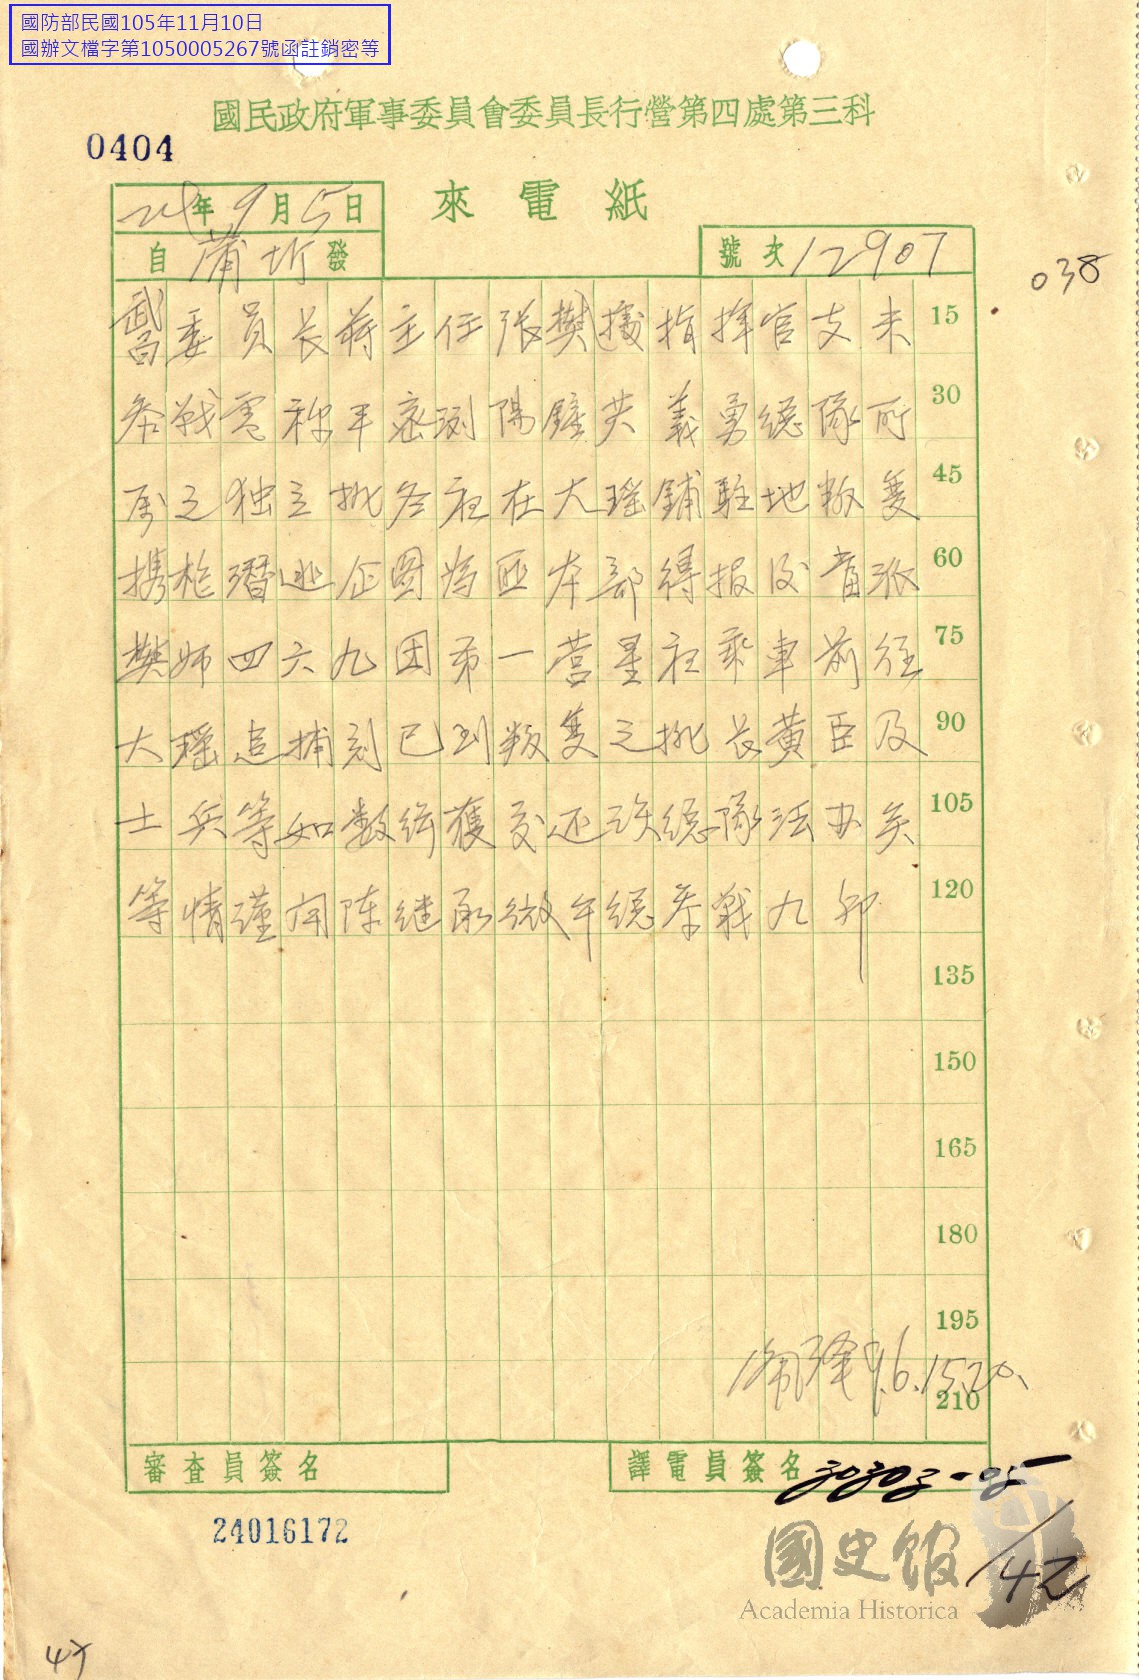 國防部民國105年11月10日
國辦文檔字第1050005267號函註銷密等
國民政府軍事委員會委員長行營第四處第三科
0404
來電紙
24年9月5日
自蒲圻發
號次12907
038
武昌委員长蔣主任張樊據指揮官支未 15
参戰電称平密浏陽鏟共義勇總隊所 30
属之独立排冬夜在大瑤鋪駐地叛变 45
携枪潛逃企图為匪本部得报後當派 60
樊师四六九团第一营星夜乘車前往 75
大瑶追捕刻已到叛变之排长黃臣及 90
士兵等如数緝獲交还該總隊法办矣 105
等情謹闻陈继承微午總参戰九印 120
135
150
165
180
195
9.6.1520
210
審查員簽名
譯電員簽名
30303-05
/42
24016172
國史館
Academia Historica